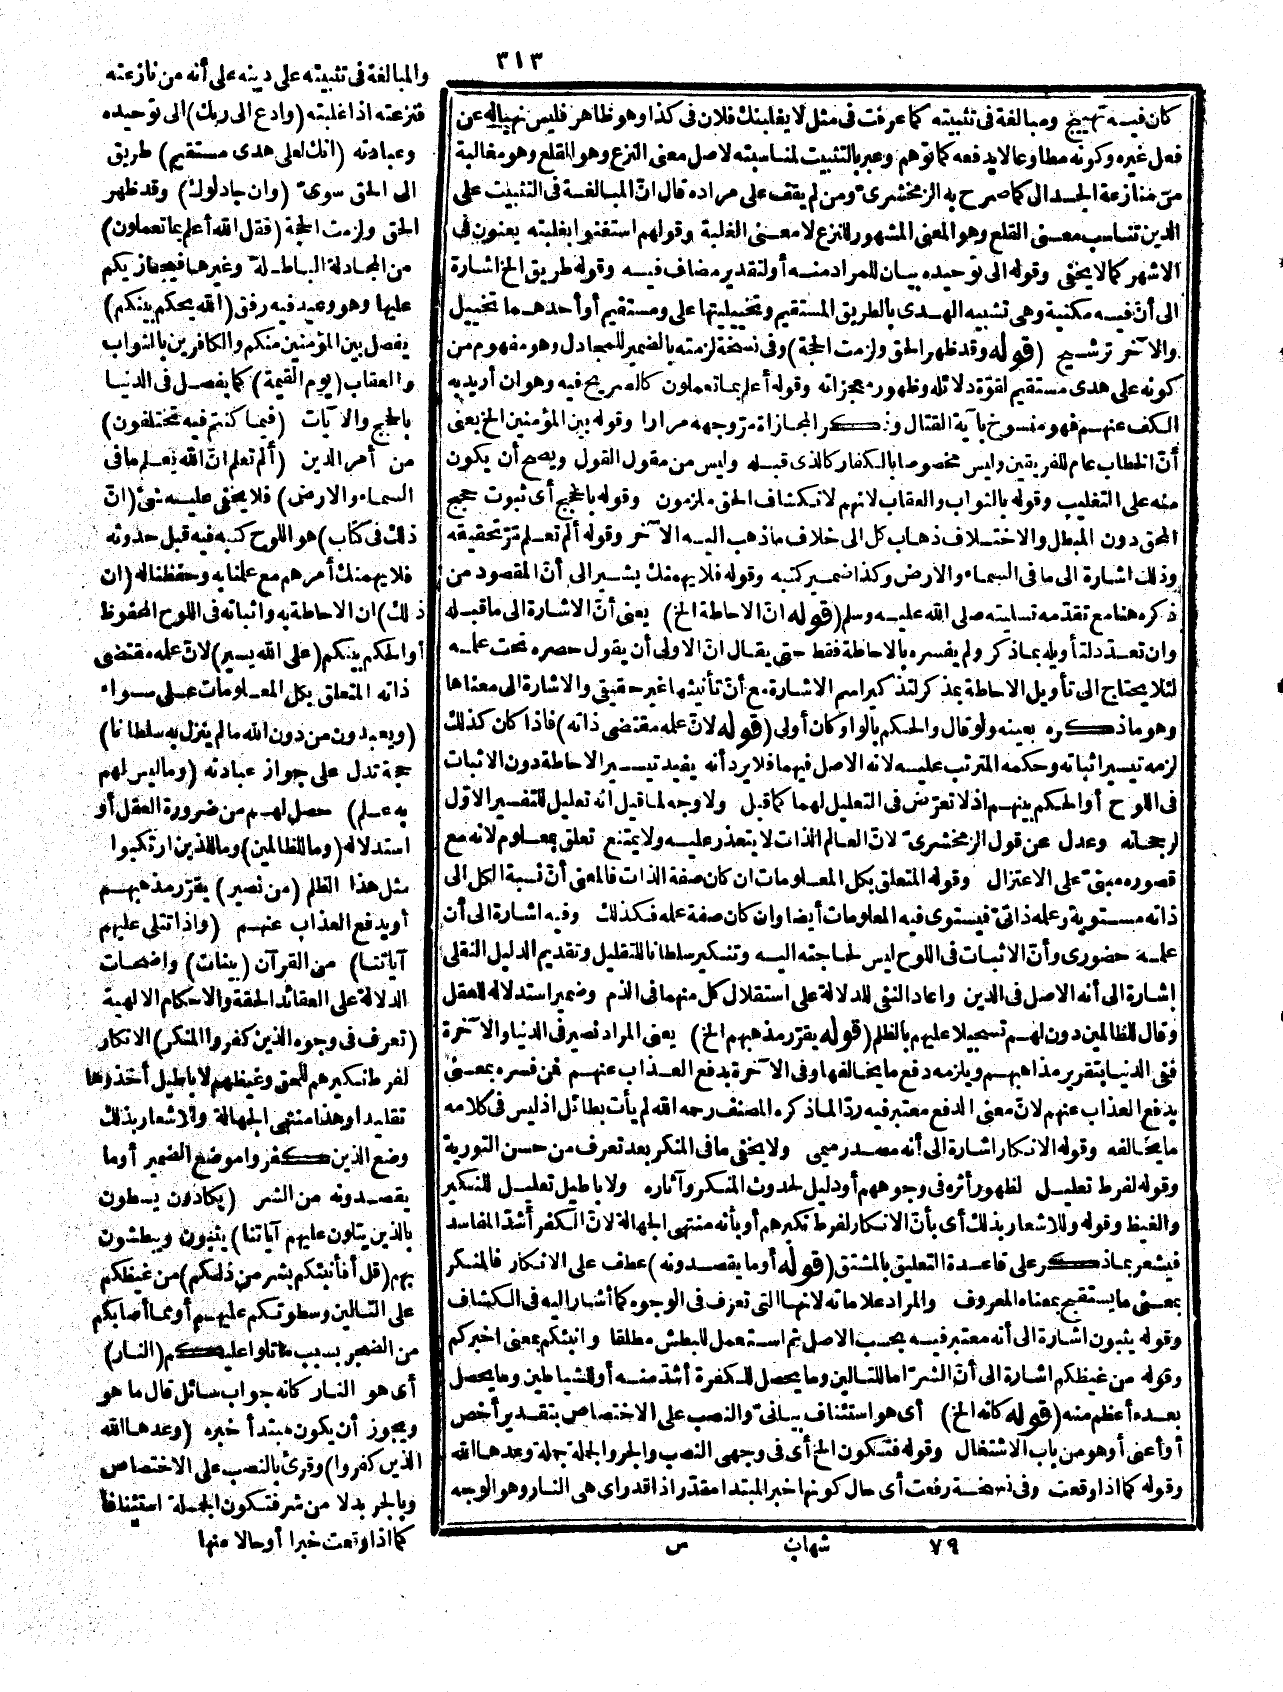 ٣١٣
كان فيه تهييج ومبالغة فى تثبيته كما عرفت فى مثل لا يغلبنك فلان فى كذا وهو ظاهر فليس نهيا له عن
فعل غيره وكونه مطاوعا لا يدفعه كما توهم وعبر بالتثبيت لمناسبته لاصل معنى النزع وهو القلع وهو مغالبة
من منازعة الجدال كما صرح به الزمخشرى ومن لم يقف على مراده قال انّ المبالغة فى التثبيت على
الدين تناسب معنى القلع وهو المعنى المشهور للنزع لا معنى الغلبة وقولهم استغنوا بغلبته يعنون فى
الاشهر كما لا يخفى وقوله الى توحيده بيان للمراد منه أو لتقدير مضاف فيه وقوله طريق الخ اشارة
الى أن فيه مكنية وهى تشبيه الهدى بالطريق المستقيم وتخييليتها على ومستقيم أو أحدهما تخييل
والآخر ترشيح (قوله وقد ظهر الحق ولزمت الحجة) وفى نسخة لزمته بالضمير للمجادل وهو مفهوم من
كونه على هدى مستقيم لقوّة دلائله وظهور معجزاته وقوله أعلم بما تعملون كالصريح فيه وهو ان أريد به
الكف عنهم فهو منسوخ بآية القتال وذكر المجازاة مرّ وجهه مرارا وقوله بين المؤمنين الخ يعنى
أنّ الخطاب عام للفريقين وليس مخصوصا بالكفار كالذى قبله وليس من مقول القول ويصح أن يكون
منه على التغليب وقوله بالثواب والعقاب لانهم لانكشاف الحق ملزمون وقوله بالحجج أى ثبوت حجج
المحق دون المبطل والاختلاف ذهاب كل الى خلاف ما ذهب اليه الآخر وقوله ألم تعلم مرّ تحقيقه
وذلك اشارة الى ما فى السماء والارض وكذا ضمير كتبه وقوله فلا يهمنك يشير الى أنّ المقصود من
ذكره هنا مع تقدّمه تسليته صلى الله عليه وسلم (قوله انّ الاحاطة الخ) يعنى أنّ الاشارة الى ما قبله
وان تعدّد لتأويله بما ذكر ولم يفسره بالاحاطة فقط حتى يقال انّ الاولى أن يقول حصره تحت علمه
لئلا يحتاج الى تأويل الاحاطة بمذكر لتذكير اسم الاشارة مع أنّ تأنيثها غير حقيقى والاشارة الى معناها
وهو ما ذكره بعينه ولو قال والحكم بالواو كان أولى (قوله لانّ علمه مقتضى ذاته) فاذا كان كذلك
لزمه تيسير اثباته وحكمه المترتب عليه لانه الاصل فيهما فلا يرد أنه يفيد تيسير الاحاطة دون الاثبات
فى اللوح أو الحكم بينهم اذ لا تعرّض فى التعليل لهما كما قيل ولا وجه لما قيل انه تعليل للتفسير الاوّل
لرجحانه وعدل عن قول الزمخشرى لانّ العالم الذات لا يتعذر عليه ولا يمتنع تعلق بمعلوم لانه مع
قصوره مبنىّ على الاعتزال وقوله المتعلق بكل المعلومات ان كان صفة الذات فالمعنى أنّ نسبة الكل الى
ذاته مستوية وعلمه ذاتىّ فيستوى فيه المعلومات أيضا وان كان صفة علمه فكذلك وفيه اشارة الى أن
علمه حضورى وأنّ الاثبات فى اللوح ليس لحاجته اليه وتنكير سلطانا للتقليل وتقديم الدليل النقلى
اشارة الى أنه الاصل فى الدين واعاد النفى للدلالة على استقلال كل منهما فى الذم وضمير استدلاله للعقل
وقال للظالمين دون لهم تسجيلا عليهم بالظلم (قوله يقرّر مذهبهم الخ) يعنى المراد نصير فى الدنيا والآخرة
ففى الدنيا بتقرير مذاهبهم ويلزمه دفع ما يخالفها وفى الآخرة بدفع العذاب عنهم فمن فسره بمعنى
يدفع العذاب عنهم لانّ معنى الدفع معتبر فيه ردّا لما ذكره المصنف رحمه الله لم يأت بطائل اذ ليس فى كلامه
ما يخالفه وقوله الانكار اشارة الى أنه مصدر ميمى ولا يخفى ما فى المنكر بعد تعرف من حسن التورية
وقوله لفرط تعليل لظهور أثره فى وجوههم أو دليل لحدوث المنكر وآثاره ولا باطيل تعليل للنكير
والغيظ وقوله وللاشعار بذلك أى بأنّ الانكار لفرط نكيرهم أو بأنه منتهى الجهالة لانّ الكفر أشدّ المفاسد
فيشعر بما ذكر على قاعدة التعليق بالمشتق (قوله أو ما يقصدونه) عطف على الانكار فالمنكر
بمعنى ما يستقبح بمعناه المعروف والمراد علاماته لانها التى تعرف فى الوجوه كما أشار اليه فى الكشاف
وقوله يثبون اشارة الى أنه معتبر فيه بحسب الاصل ثم استعمل للبطش مطلقا وانبئكم بمعنى اخبركم
وقوله من غيظكم اشارة الى أنّ الشرّ اما للتالين وما يحصل للكفرة أشدّ منه أو للشياطين وما يحصل
بعده أعظم منه (قوله كانه الخ) أى هو استئناف بيانىّ والنصب على الاختصاص بتقدير أخص
أو أعنى أو هو من باب الاشتغال وقوله فتكون الخ أى فى وجهى النصب والجر والجملة جملة وعدها الله
وقوله كما اذا وقعت وفى نسخة رفعت أى حال كونها خبر المبتدا مقدّر اذا قدر أى هى النار وهو الوجه
٧٩ شهاب س
والمبالغة فى تثبيته على دينه على أنه من نازعته
فنزعته اذا غلبته (وادع الى ربك) الى توحيده
وعبادته (انك لعلى هدى مستقيم) طريق
الى الحق سوىّ (وان جادلوك) وقد ظهر
الحق ولزمت الحجة (فقل الله أعلم بما تعملون)
من المجادلة الباطلة وغيرها فيجازيكم
عليها وهو وعيد فيه رفق (الله يحكم بينكم)
يفصل بين المؤمنين منكم والكافرين بالثواب
والعقاب (يوم القيمة) كما يفصل فى الدنيا
بالحجج والآيات (فيما كنتم فيه تختلفون)
من أمر الدين (ألم تعلم انّ الله يعلم ما فى
السماء والارض) فلا يخفى عليه شئ (انّ
ذلك فى كتاب) هو اللوح كتبه فيه قبل حدوثه
فلا يهمنك أمرهم مع علمنا به وحفظنا له (ان
ذلك) ان الاحاطة به واثباته فى اللوح المحفوظ
أو الحكم بينكم (على الله يسير) لانّ علمه مقتضى
ذاته المتعلق بكل المعلومات على سواء
(ويعبدون من دون الله ما لم ينزل به سلطانا)
حجة تدل على جواز عبادته (وما ليس لهم
به علم) حصل لهم من ضرورة العقل أو
استدلاله (وما للظالمين) وما للذين ارتكبوا
مثل هذا الظلم (من نصير) يقرّر مذهبهم
أو يدفع العذاب عنهم (واذا تتلى عليهم
آياتنا) من القرآن (بينات) واضحات
الدلالة على العقائد الحقة والاحكام الالهية
(تعرف فى وجوه الذين كفروا المنكر) الانكار
لفرط نكيرهم للحق وغيظهم لاباطيل أخذوها
تقليدا وهذا منتهى الجهالة وللاشعار بذلك
وضع الذين كفروا موضع الضمير أو ما
يقصدونه من الشر (يكادون يسطون
بالذين يتلون عليهم آياتنا) يثبون ويبطشون
بهم (قل أفأنبئكم بشر من ذلكم) من غيظكم
على التالين وسطوتكم عليهم أو مما أصابكم
من الضجر بسبب ما تلوا عليكم (النار)
أى هو النار كانه جواب سائل قال ما هو
ويجوز أن يكون مبتدأ خبره (وعدها الله
الذين كفروا) وقرئ بالنصب على الاختصاص
وبالجر بدلا من شر فتكون الجملة استئنافا
كما اذا وقعت خبرا أو حالا منها